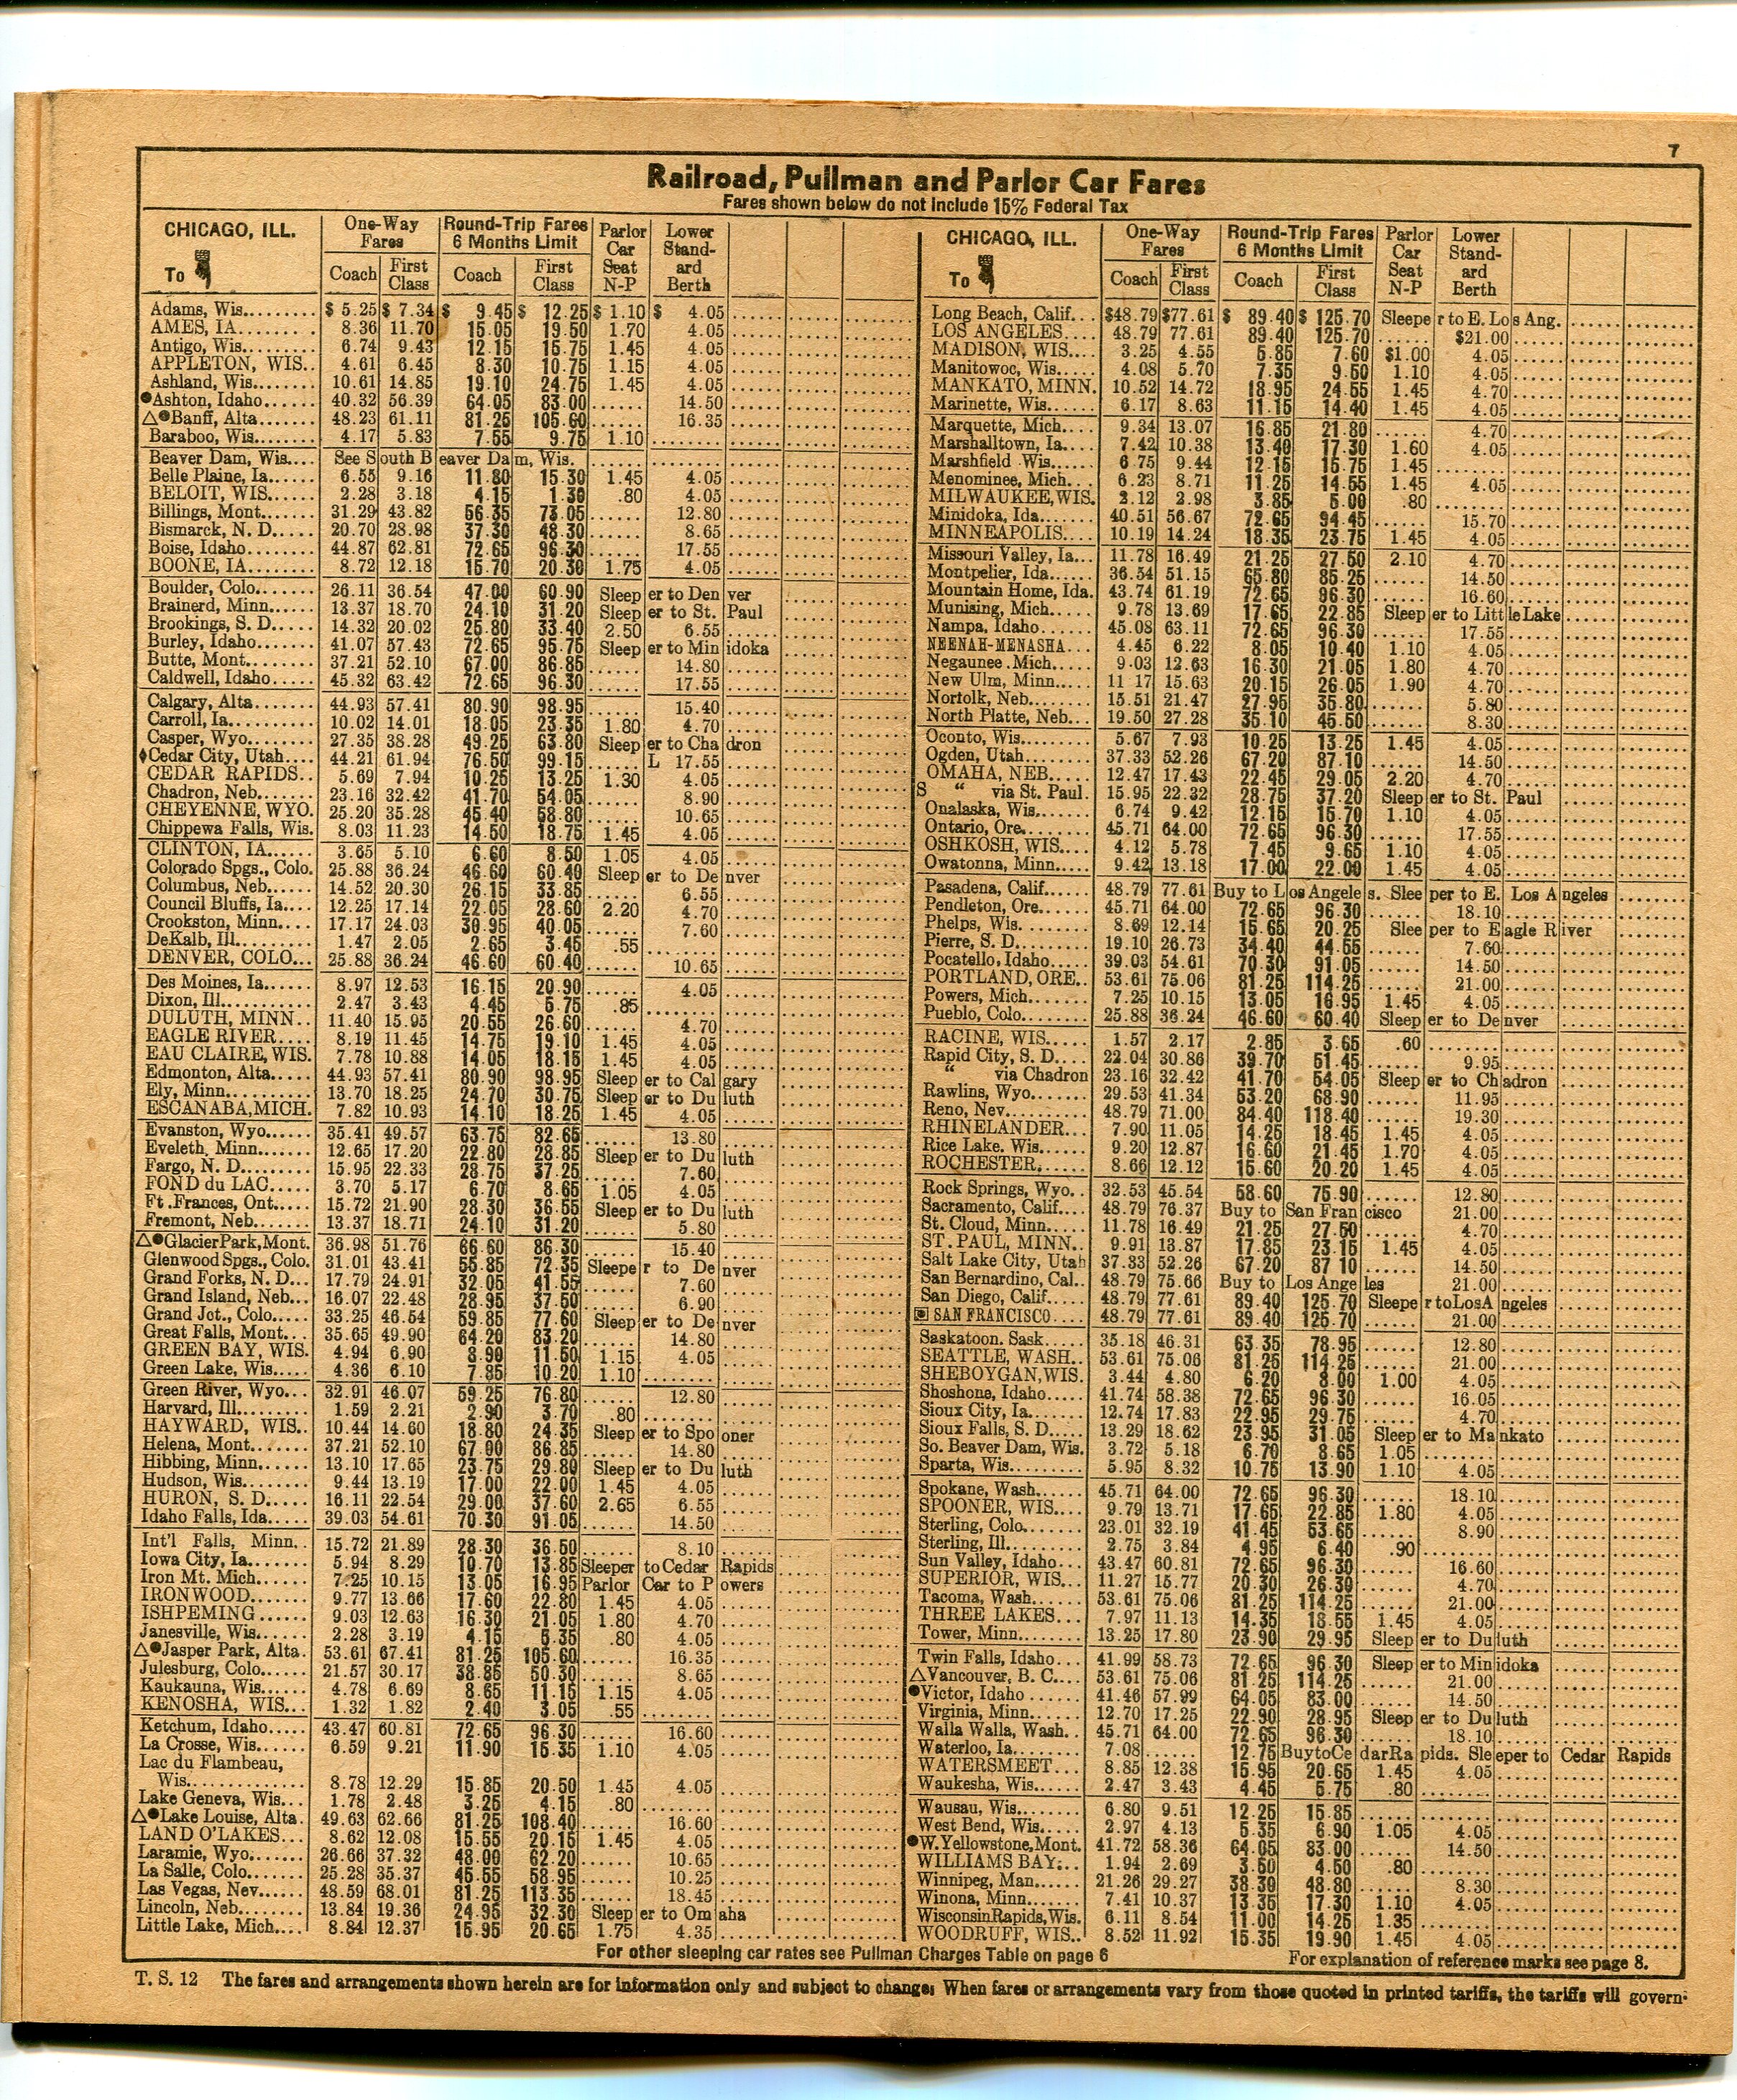 7
Railroad, Pullman and Parlor Car Fares
Fares shown below do not include 15% Federal Tax
CHICAGO, ILL. To
One-Way Fares Round-Trip Fares 6 Months Limit Parlor Car Seat N-P Lower Standard Berth
Coach First Class Coach First Class
Adams, Wis......... $ 5.25 $ 7.34 $ 9.45 $ 12.25 $ 1.10 $ 4.05
AMES, IA........ 8.36 11.70 15.05 19.50 1.70 4.05
Antigo, Wis......... 6.74 9.43 12.15 15.75 1.45 4.05
APPLETON, WIS.. 4.61 6.45 8.30 10.75 1.15 4.05
Ashland, Wis........ 10.61 14.85 19.10 24.75 1.45 4.05
●Ashton, Idaho...... 40.32 56.39 64.05 83.00 ...... 14.50
△●Banff, Alta....... 48.23 61.11 81.25 105.60 ...... 16.35
Baraboo, Wis........ 4.17 5.83 7.55 9.75 1.10 ..........
Beaver Dam, Wis.... See South Beaver Dam, Wis.
Belle Plaine, Ia...... 6.55 9.16 11.80 15.30 1.45 4.05
BELOIT, WIS...... 2.28 3.18 4.15 1.30 .80 4.05
Billings, Mont....... 31.29 43.82 56.35 73.05 ...... 12.80
Bismarck, N. D..... 20.70 28.98 37.30 48.30 ...... 8.65
Boise, Idaho........ 44.87 62.81 72.65 96.30 ...... 17.55
BOONE, IA........ 8.72 12.18 15.70 20.30 1.75 4.05
Boulder, Colo....... 26.11 36.54 47.00 60.90 Sleeper to Denver
Brainerd, Minn..... 13.37 18.70 24.10 31.20 Sleeper to St. Paul
Brookings, S. D..... 14.32 20.02 25.80 33.40 2.50 6.55
Burley, Idaho....... 41.07 57.43 72.65 95.75 Sleeper to Minidoka
Butte, Mont........ 37.21 52.10 67.00 86.85 ...... 14.80
Caldwell, Idaho..... 45.32 63.42 72.65 96.30 ...... 17.55
Calgary, Alta....... 44.93 57.41 80.90 98.95 ...... 15.40
Carroll, Ia.......... 10.02 14.01 18.05 23.35 1.80 4.70
Casper, Wyo........ 27.35 38.28 49.25 63.80 Sleeper to Chadron
♦Cedar City, Utah.... 44.21 61.94 76.50 99.15 ...... L 17.55
CEDAR RAPIDS.. 5.69 7.94 10.25 13.25 1.30 4.05
Chadron, Neb....... 23.16 32.42 41.70 54.05 ...... 8.90
CHEYENNE, WYO. 25.20 35.28 45.40 58.80 ...... 10.65
Chippewa Falls, Wis. 8.03 11.23 14.50 18.75 1.45 4.05
CLINTON, IA...... 3.65 5.10 6.60 8.50 1.05 4.05
Colorado Spgs., Colo. 25.88 36.24 46.60 60.40 Sleeper to Denver
Columbus, Neb...... 14.52 20.30 26.15 33.85 ...... 6.55
Council Bluffs, Ia.... 12.25 17.14 22.05 28.60 2.20 4.70
Crookston, Minn.... 17.17 24.03 30.95 40.05 ...... 7.60
DeKalb, Ill......... 1.47 2.05 2.65 3.45 .55 ..........
DENVER, COLO... 25.88 36.24 46.60 60.40 ...... 10.65
Des Moines, Ia...... 8.97 12.53 16.15 20.90 ...... 4.05
Dixon, Ill........... 2.47 3.43 4.45 5.75 .85 ..........
DULUTH, MINN.. 11.40 15.95 20.55 26.60 ...... 4.70
EAGLE RIVER.... 8.19 11.45 14.75 19.10 1.45 4.05
EAU CLAIRE, WIS. 7.78 10.88 14.05 18.15 1.45 4.05
Edmonton, Alta..... 44.93 57.41 80.90 98.95 Sleeper to Calgary
Ely, Minn.......... 13.70 18.25 24.70 30.75 Sleeper to Duluth
ESCANABA, MICH. 7.82 10.93 14.10 18.25 1.45 4.05
Evanston, Wyo...... 35.41 49.57 63.75 82.65 ...... 13.80
Eveleth, Minn....... 12.65 17.20 22.80 28.85 Sleeper to Duluth
Fargo, N. D......... 15.95 22.33 28.75 37.25 ...... 7.60
FOND du LAC..... 3.70 5.17 6.70 8.65 1.05 4.05
Ft. Frances, Ont..... 15.72 21.90 28.30 36.55 Sleeper to Duluth
Fremont, Neb....... 13.37 18.71 24.10 31.20 ...... 5.80
△●GlacierPark, Mont. 36.98 51.76 66.60 86.30 ...... 15.40
Glenwood Spgs., Colo. 31.01 43.41 55.85 72.35 Sleeper to Denver
Grand Forks, N. D... 17.79 24.91 32.05 41.55 ...... 7.60
Grand Island, Neb... 16.07 22.48 28.95 37.50 ...... 6.90
Grand Jct., Colo.... 33.25 46.54 59.85 77.60 Sleeper to Denver
Great Falls, Mont... 35.65 49.90 64.20 83.20 ...... 14.80
GREEN BAY, WIS. 4.94 6.90 8.90 11.50 1.15 4.05
Green Lake, Wis..... 4.36 6.10 7.85 10.20 1.10 ..........
Green River, Wyo... 32.91 46.07 59.25 76.80 ...... 12.80
Harvard, Ill........ 1.59 2.21 2.90 3.70 .80 ..........
HAYWARD, WIS.. 10.44 14.60 18.80 24.35 Sleeper to Spooner
Helena, Mont....... 37.21 52.10 67.00 86.85 ...... 14.80
Hibbing, Minn...... 13.10 17.65 23.75 29.80 Sleeper to Duluth
Hudson, Wis........ 9.44 13.19 17.00 22.00 1.45 4.05
HURON, S. D..... 16.11 22.54 29.00 37.60 2.65 6.55
Idaho Falls, Ida..... 39.03 54.61 70.30 91.05 ...... 14.50
Int'l Falls, Minn.. 15.72 21.89 28.30 36.50 ...... 8.10
Iowa City, Ia....... 5.94 8.29 10.70 13.85 Sleeper to Cedar Rapids
Iron Mt. Mich...... 7.25 10.15 13.05 16.95 Parlor Car to Powers
IRONWOOD....... 9.77 13.66 17.60 22.80 1.45 4.05
ISHPEMING...... 9.03 12.63 16.30 21.05 1.80 4.70
Janesville, Wis...... 2.28 3.19 4.15 5.35 .80 4.05
△●Jasper Park, Alta. 53.61 67.41 81.25 105.60 ...... 16.35
Julesburg, Colo...... 21.57 30.17 38.85 50.30 ...... 8.65
Kaukauna, Wis...... 4.78 6.69 8.65 11.15 1.15 4.05
KENOSHA, WIS... 1.32 1.82 2.40 3.05 .55 ..........
Ketchum, Idaho..... 43.47 60.81 72.65 96.30 ...... 16.60
La Crosse, Wis...... 6.59 9.21 11.90 15.35 1.10 4.05
Lac du Flambeau,
Wis.............. 8.78 12.29 15.85 20.50 1.45 4.05
Lake Geneva, Wis... 1.78 2.48 3.25 4.15 .80 ..........
△●Lake Louise, Alta. 49.63 62.66 81.25 108.40 ...... 16.60
LAND O'LAKES... 8.62 12.08 15.55 20.15 1.45 4.05
Laramie, Wyo....... 26.66 37.32 48.00 62.20 ...... 10.65
La Salle, Colo....... 25.28 35.37 45.55 58.95 ...... 10.25
Las Vegas, Nev...... 48.59 68.01 81.25 113.35 ...... 18.45
Lincoln, Neb........ 13.84 19.36 24.95 32.30 Sleeper to Omaha
Little Lake, Mich.... 8.84 12.37 15.95 20.65 1.75 4.35
CHICAGO, ILL. To
One-Way Fares Round-Trip Fares 6 Months Limit Parlor Car Seat N-P Lower Standard Berth
Coach First Class Coach First Class
Long Beach, Calif... $48.79 $77.61 $ 89.40 $ 125.70 Sleeper to E. Los Ang.
LOS ANGELES.... 48.79 77.61 89.40 125.70 ...... $21.00
MADISON, WIS.... 3.25 4.55 5.85 7.60 $1.00 4.05
Manitowoc, Wis..... 4.08 5.70 7.35 9.50 1.10 4.05
MANKATO, MINN. 10.52 14.72 18.95 24.55 1.45 4.70
Marinette, Wis...... 6.17 8.63 11.15 14.40 1.45 4.05
Marquette, Mich.... 9.34 13.07 16.85 21.80 ...... 4.70
Marshalltown, Ia.... 7.42 10.38 13.40 17.30 1.60 4.05
Marshfield Wis...... 6.75 9.44 12.15 15.75 1.45 ..........
Menominee, Mich... 6.23 8.71 11.25 14.55 1.45 4.05
MILWAUKEE, WIS. 2.12 2.98 3.85 5.00 .80 ..........
Minidoka, Ida....... 40.51 56.67 72.65 94.45 ...... 15.70
MINNEAPOLIS.... 10.19 14.24 18.35 23.75 1.45 4.05
Missouri Valley, Ia... 11.78 16.49 21.25 27.50 2.10 4.70
Montpelier, Ida...... 36.54 51.15 65.80 85.25 ...... 14.50
Mountain Home, Ida. 43.74 61.19 72.65 96.30 ...... 16.60
Munising, Mich..... 9.78 13.69 17.65 22.85 Sleeper to Little Lake
Nampa, Idaho...... 45.08 63.11 72.65 96.30 ...... 17.55
NEENAH-MENASHA... 4.45 6.22 8.05 10.40 1.10 4.05
Negaunee. Mich..... 9.03 12.63 16.30 21.05 1.80 4.70
New Ulm, Minn..... 11 17 15.63 20.15 26.05 1.90 4.70
Norfolk, Neb........ 15.51 21.47 27.95 35.80 ...... 5.80
North Platte, Neb... 19.50 27.28 35.10 45.50 ...... 8.30
Oconto, Wis......... 5.67 7.93 10.25 13.25 1.45 4.05
Ogden, Utah........ 37.33 52.26 67.20 87.10 ...... 14.50
OMAHA, NEB..... 12.47 17.43 22.45 29.05 2.20 4.70
S " via St. Paul. 15.95 22.32 28.75 37.20 Sleeper to St. Paul
Onalaska, Wis....... 6.74 9.42 12.15 15.70 1.10 4.05
Ontario, Ore........ 45.71 64.00 72.65 96.30 ...... 17.55
OSHKOSH, WIS.... 4.12 5.78 7.45 9.65 1.10 4.05
Owatonna, Minn.... 9.42 13.18 17.00 22.00 1.45 4.05
Pasadena, Calif...... 48.79 77.61 Buy to Los Angeles. Sleeper to E. Los Angeles
Pendleton, Ore...... 45.71 64.00 72.65 96.30 ...... 18.10
Phelps, Wis......... 8.69 12.14 15.65 20.25 Sleeper to Eagle River
Pierre, S. D......... 19.10 26.73 34.40 44.55 ...... 7.60
Pocatello, Idaho..... 39.03 54.61 70.30 91.05 ...... 14.50
PORTLAND, ORE.. 53.61 75.06 81.25 114.25 ...... 21.00
Powers, Mich....... 7.25 10.15 13.05 16.95 1.45 4.05
Pueblo, Colo........ 25.88 36.24 46.60 60.40 Sleeper to Denver
RACINE, WIS..... 1.57 2.17 2.85 3.65 .60 ..........
Rapid City, S. D.... 22.04 30.86 39.70 51.45 ...... 9.95
" via Chadron 23.16 32.42 41.70 54.05 Sleeper to Chadron
Rawlins, Wyo....... 29.53 41.34 53.20 68.90 ...... 11.95
Reno, Nev.......... 48.79 71.00 84.40 118.40 ...... 19.30
RHINELANDER... 7.90 11.05 14.25 18.45 1.45 4.05
Rice Lake. Wis...... 9.20 12.87 16.60 21.45 1.70 4.05
ROCHESTER....... 8.66 12.12 15.60 20.20 1.45 4.05
Rock Springs, Wyo.. 32.53 45.54 58.60 75.90 ...... 12.80
Sacramento, Calif.... 48.79 76.37 Buy to San Francisco 21.00
St. Cloud, Minn..... 11.78 16.49 21.25 27.50 ...... 4.70
ST. PAUL, MINN.. 9.91 13.87 17.85 23.15 1.45 4.05
Salt Lake City, Utah 37.33 52.26 67.20 87 10 ...... 14.50
San Bernardino, Cal.. 48.79 75.66 Buy to Los Angeles 21.00
San Diego, Calif..... 48.79 77.61 89.40 125.70 Sleeper to Los Angeles
SAN FRANCISCO.... 48.79 77.61 89.40 125.70 ...... 21.00
Saskatoon. Sask..... 35.18 46.31 63.35 78.95 ...... 12.80
SEATTLE, WASH.. 53.61 75.06 81.25 114.25 ...... 21.00
SHEBOYGAN, WIS. 3.44 4.80 6.20 8.00 1.00 4.05
Shoshone, Idaho..... 41.74 58.38 72.65 96.30 ...... 16.05
Sioux City, Ia....... 12.74 17.83 22.95 29.75 ...... 4.70
Sioux Falls, S. D..... 13.29 18.62 23.95 31.05 Sleeper to Mankato
So. Beaver Dam, Wis. 3.72 5.18 6.70 8.65 1.05 ..........
Sparta, Wis......... 5.95 8.32 10.75 13.90 1.10 4.05
Spokane, Wash...... 45.71 64.00 72.65 96.30 ...... 18.10
SPOONER, WIS.... 9.79 13.71 17.65 22.85 1.80 4.05
Sterling, Colo....... 23.01 32.19 41.45 53.65 ...... 8.90
Sterling, Ill......... 2.75 3.84 4.95 6.40 .90 ..........
Sun Valley, Idaho... 43.47 60.81 72.65 96.30 ...... 16.60
SUPERIOR, WIS... 11.27 15.77 20.30 26.30 ...... 4.70
Tacoma, Wash...... 53.61 75.06 81.25 114.25 ...... 21.00
THREE LAKES... 7.97 11.13 14.35 18.55 1.45 4.05
Tower, Minn........ 13.25 17.80 23.90 29.95 Sleeper to Duluth
Twin Falls, Idaho... 41.99 58.73 72.65 96.30 Sleeper to Minidoka
△Vancouver, B. C.... 53.61 75.06 81.25 114.25 ...... 21.00
●Victor, Idaho...... 41.46 57.99 64.05 83.00 ...... 14.50
Virginia, Minn...... 12.70 17.25 22.90 28.95 Sleeper to Duluth
Walla Walla, Wash.. 45.71 64.00 72.65 96.30 ...... 18.10
Waterloo, Ia........ 7.08 ...... 12.75 Buy to Cedar Rapids. Sleeper to Cedar Rapids
WATERSMEET... 8.85 12.38 15.95 20.65 1.45 4.05
Waukesha, Wis...... 2.47 3.43 4.45 5.75 .80 ..........
Wausau, Wis........ 6.80 9.51 12.25 15.85 ...... ..........
West Bend, Wis..... 2.97 4.13 5.35 6.90 1.05 4.05
●W. Yellowstone, Mont. 41.72 58.36 64.05 83.00 ...... 14.50
WILLIAMS BAY... 1.94 2.69 3.50 4.50 .80 ..........
Winnipeg, Man...... 21.26 29.27 38.30 48.80 ...... 8.30
Winona, Minn...... 7.41 10.37 13.35 17.30 1.10 4.05
Wisconsin Rapids, Wis. 6.11 8.54 11.00 14.25 1.35 ..........
WOODRUFF, WIS.. 8.52 11.92 15.35 19.90 1.45 4.05
For other sleeping car rates see Pullman Charges Table on page 6
For explanation of reference marks see page 8.
T. S. 12 The fares and arrangements shown herein are for information only and subject to change; When fares or arrangements vary from those quoted in printed tariffs, the tariffs will govern.